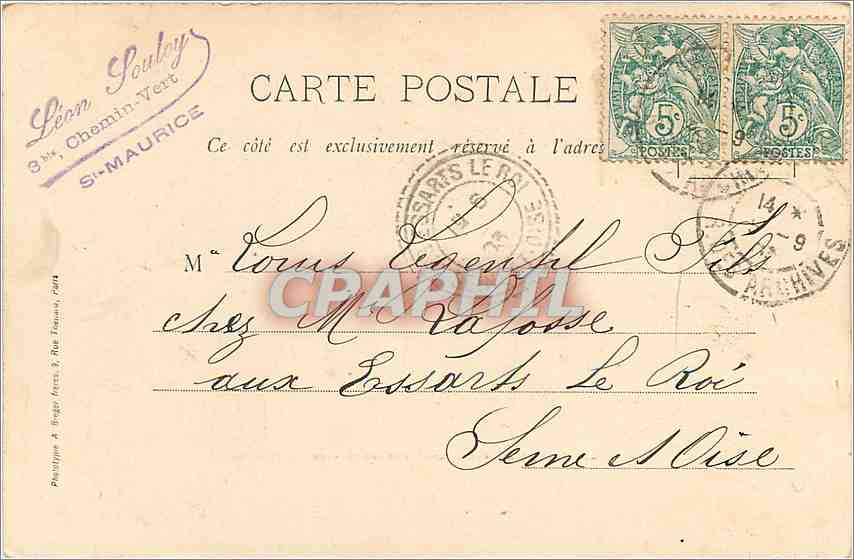 Léon Souloy
8 bis, Chemin-Vert
St-MAURICE
CARTE POSTALE
Ce côté est exclusivement réservé à l'adres
5c
POSTES
5c
POSTES
ESSARTS LE ROI
OISE
14
9
ARCHIVES
M Louis Fils
CPAPHIL
chez Mr Lafosse
aux Essarts Le Roi
Seine et Oise
Phototypie A Breger frères, 9, Rue Thénard, Paris